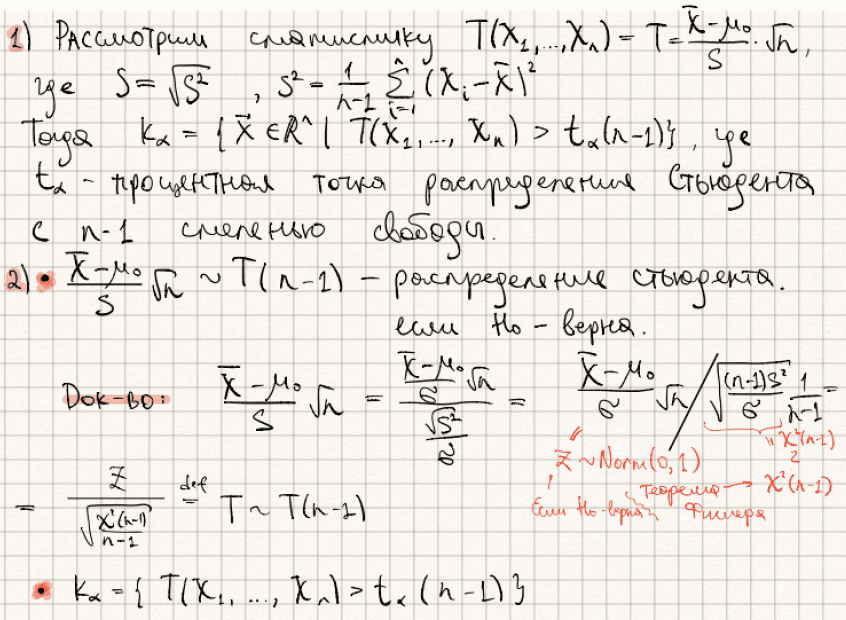 1) Рассмотрим статистику T(X₁,...,Xₙ) = T = (X̄ − μ₀)/S · √n,
где S = √S², S² = 1/(n−1) ∑ᵢ₌₁ⁿ (Xᵢ − X̄)²
Тогда K_α = { X⃗ ∈ Rⁿ | T(X₁,..., Xₙ) > t_α(n−1)}, где
t_α - процентная точка распределения Стьюдента
с n-1 степенью свободы.
2) • (X̄ − μ₀)/S √n ~ T(n−1) − распределение стьюдента.
если H₀ - верна.
Док-во: (X̄ − μ₀)/S √n = ((X̄ − μ₀)/σ √n)/(√S²/σ) = (X̄ − μ₀)/σ √n / √((n−1)S²/σ · 1/(n−1)) =
" χ²(n−1)
Z ~ Norm(0,1)
Если H₀-верна Теорема Фишера → χ²(n−1)
= Z/√(χ²(n−1)/(n−1)) def= T ~ T(n−1)
• K_α = { T(X₁, ..., Xₙ) > t_α (n−1) }